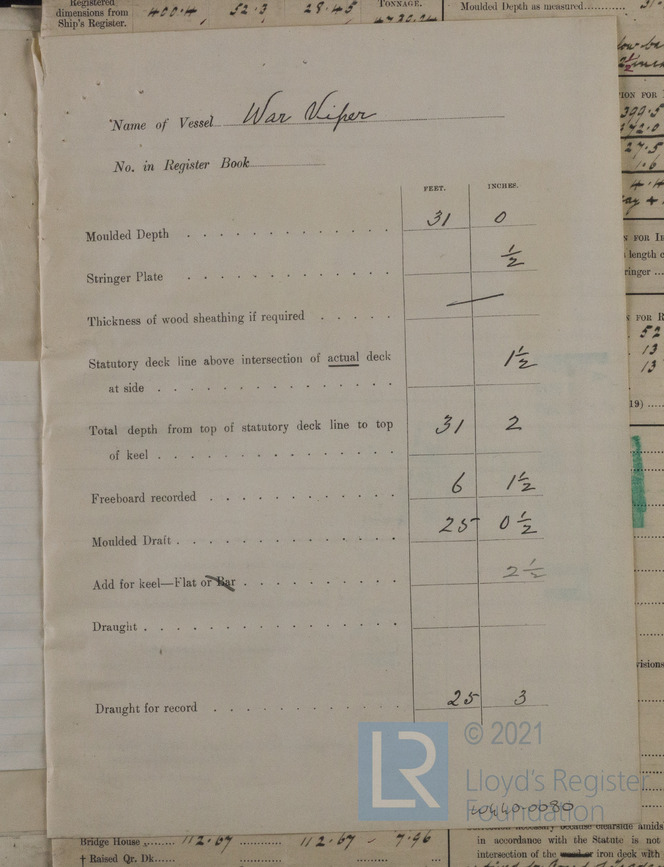 Registered
dimensions from
Ship's Register.
400.4, 52.3 28.45
TONNAGE.
Moulded Depth as measured
Name of Vessel War Viper
No. in Register Book
FEET. INCHES.
Moulded Depth 31 0
Stringer Plate ½
Thickness of wood sheathing if required —
Statutory deck line above intersection of actual deck
at side 1½
Total depth from top of statutory deck line to top
of keel 31 2
Freeboard recorded 6 1½
Moulded Draft 25 0½
Add for keel—Flat or Bar 2½
Draught
Draught for record 25 3
© 2021
LR
Lloyd's Register
Foundation
W440-0080
Bridge House 112.67 112.67 7.96
† Raised Qr. Dk
in accordance with the Statute is not
intersection of the iron deck with